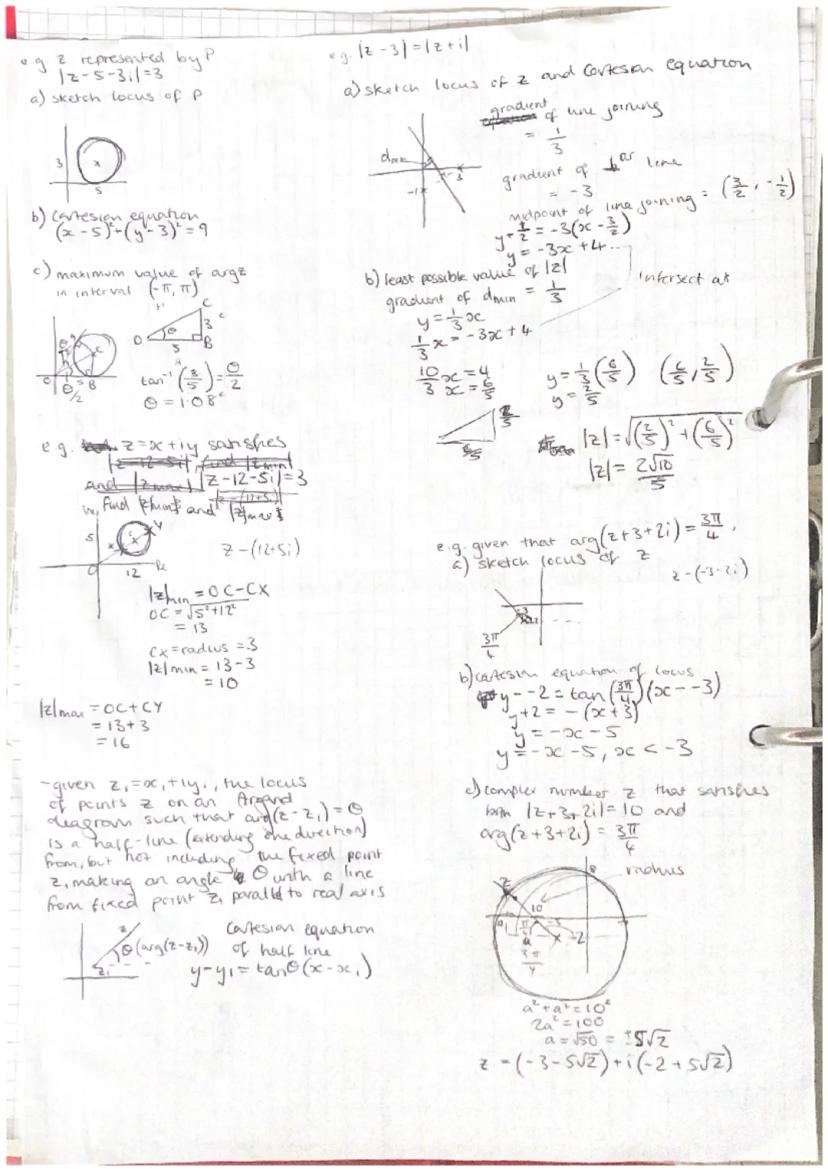 e.g. z represented by P
|z-5-3i|=3
a) sketch locus of P
3
x
5
b) Cartesian equation
(x-5)²+(y-3)²=9
c) maximum value of argz
in interval (-π, π)
C
3
O
θ
5
B
O
B
C
tan⁻¹(3/5)=θ/2
θ = 1.08ᶜ
e.g. z=x+iy satisfies
|z-12-5i|=3
find |z|min and |z|max
5
12
Re
C
X
Y
O
z-(12+5i)
|z|min = OC-CX
OC=√5²+12²
= 13
CX=radius=3
|z|min = 13-3
= 10
|z|max = OC+CY
= 13+3
= 16
-given z₁=x₁+iy₁, the locus
of points z on an Argand
diagram such that arg(z-z₁)=θ
is a half-line (extending one direction)
from, but not including, the fixed point
z₁ making an angle θ with a line
from fixed point z₁ parallel to real axis
z
θ(arg(z-z₁))
z₁
Cartesian equation
of half line
y-y₁=tanθ(x-x₁)
e.g. |z-3|=|z+i|
a) sketch locus of z and Cartesian equation
dmin
3
-1
gradient of line joining
= 1/3
gradient of ⊥ar line
= -3
midpoint of line joining = (3/2, -1/2)
y+1/2=-3(x-3/2)
y=-3x+4...
b) least possible value of |z|
intersect at
gradient of dmin = 1/3
y=1/3x
1/3x=-3x+4
10/3x=4
x=6/5
y=1/3(6/5)
y=2/5
(6/5, 2/5)
2/5
6/5
|z|=√(2/5)²+(6/5)²
|z|=2√10/5
e.g. given that arg(z+3+2i)=3π/4.
a) sketch locus of z
z-(-3-2i)
3π/4
b) Cartesian equation of locus
y--2=tan(3π/4)(x--3)
y+2=-(x+3)
y=-x-5
y=-x-5, x<-3
c) complex number z that satisfies
both |z+3+2i|=10 and
arg(z+3+2i)=3π/4
radius
z
10
a
-3
-2
a²+a²=10²
2a²=100
a=√50=±5√2
z=(-3-5√2)+i(-2+5√2)